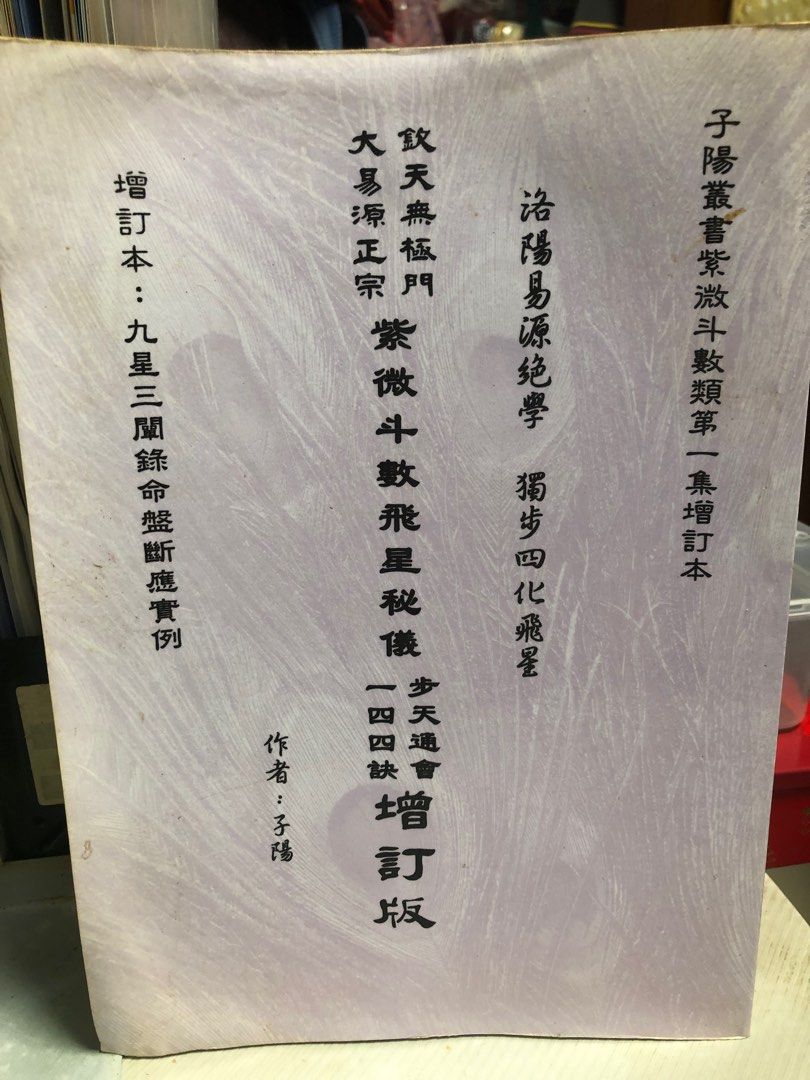 子陽叢書紫微斗數類第一集增訂本
洛陽易源絶學　獨步四化飛星
欽天無極門
大易源正宗
紫微斗數飛星秘儀
步天通會
一四四訣
增訂版
作者：子陽
增訂本：九星三闈錄命盤斷應實例